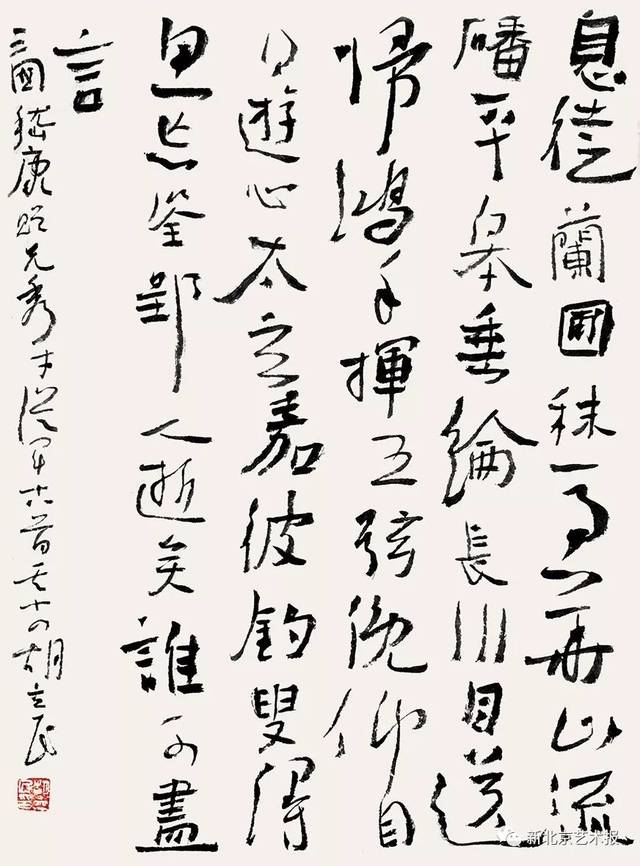 息徒蘭圃秣馬華山流
磻平皋垂綸長川目送
歸鴻手揮五弦俛仰自
得遊心太玄嘉彼釣叟得
魚忘筌郢人逝矣誰可盡
言
三國嵇康贈兄秀才從軍十八首其十四胡立民
新北京艺术报